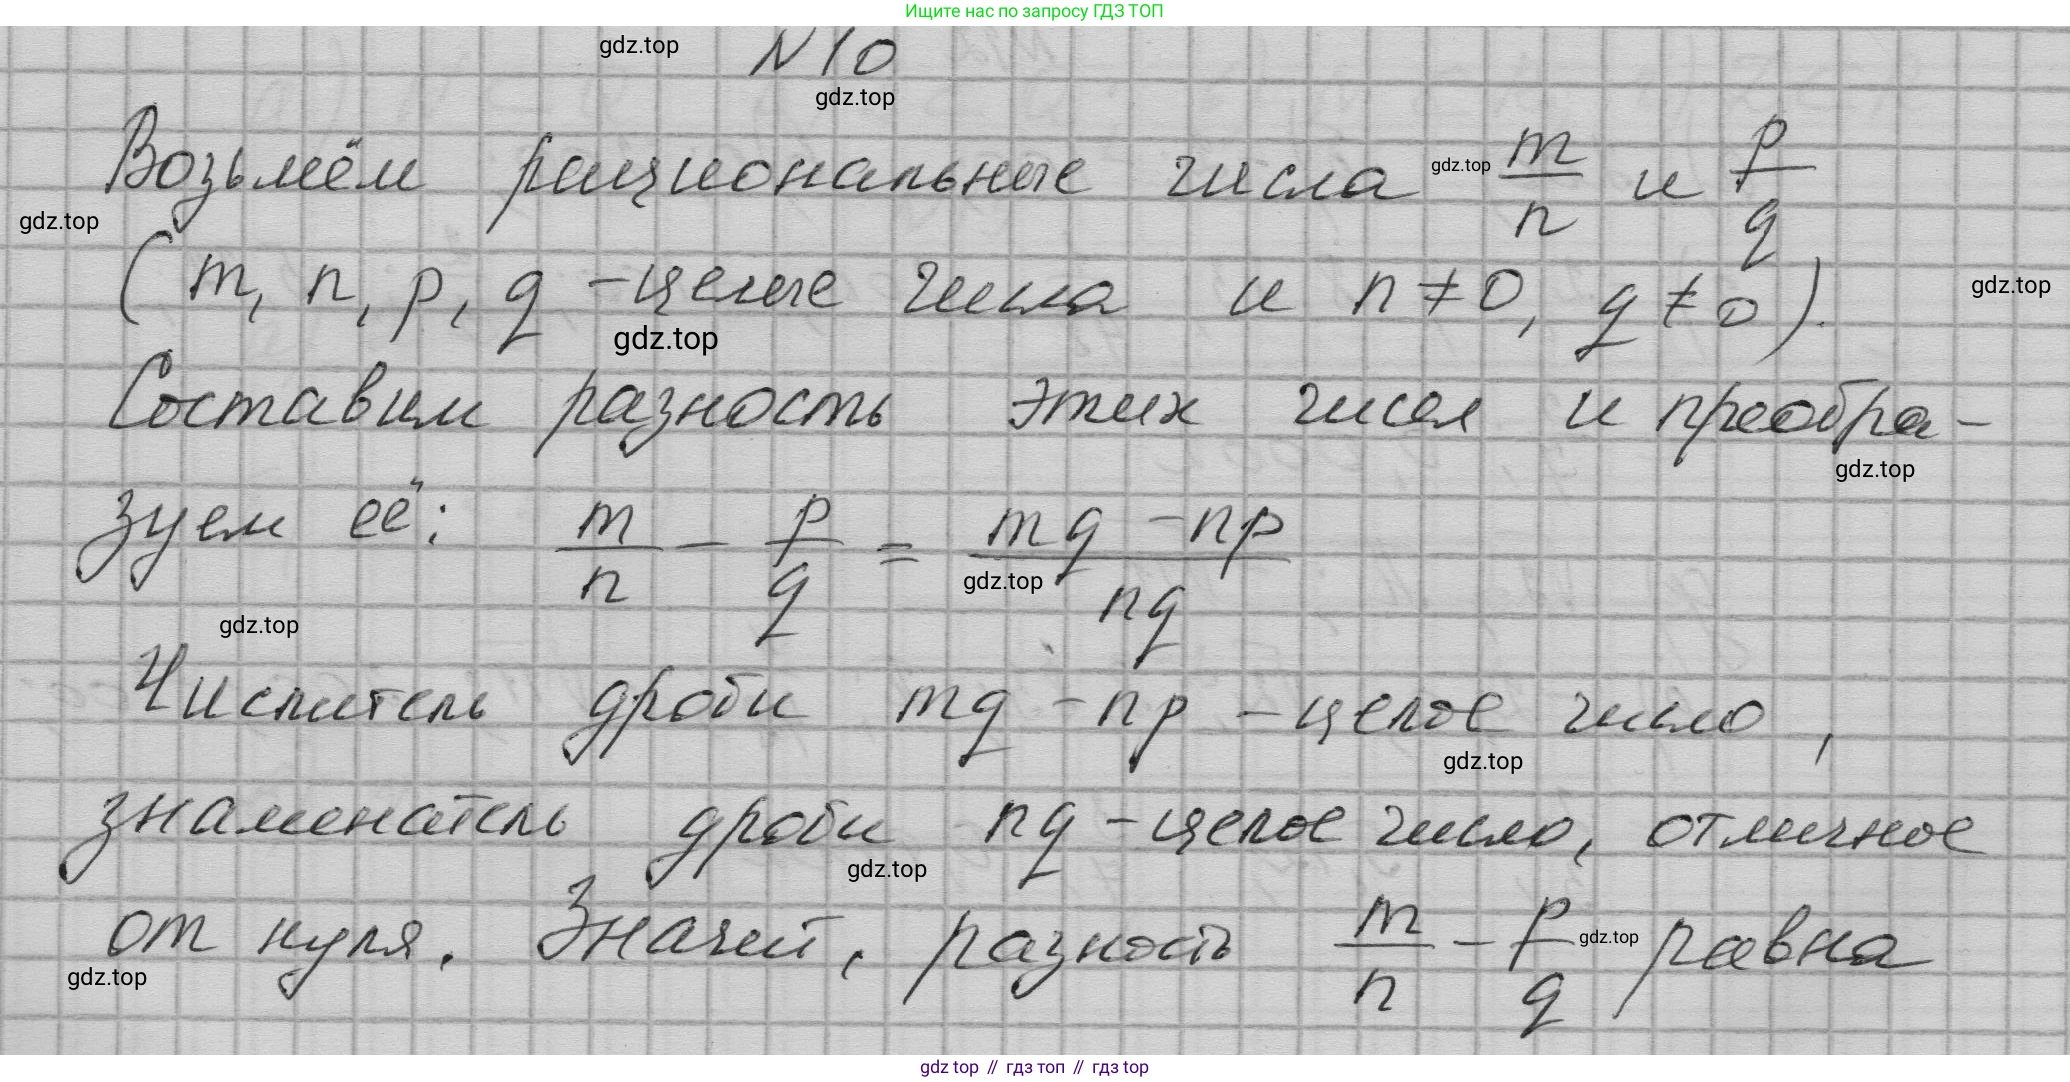 Ищите нас по запросу ГДЗ ТОП
gdz.top
N10
gdz.top
Возьмём рациональные числа gdz.top m/n и p/q
gdz.top
(m, n, p, q - целые числа и n≠0, q≠0).
gdz.top
gdz.top
Составим разность этих чисел и преобра-
gdz.top
зуем её: m/n - p/q = (mq - np)/nq
gdz.top
gdz.top
Числитель дроби mq - np - целое число,
gdz.top
знаменатель дроби nq - целое число, отличное
gdz.top
от нуля. Значит, разность m/n - p/q gdz.top равна
gdz.top
gdz top // гдз топ // gdz top